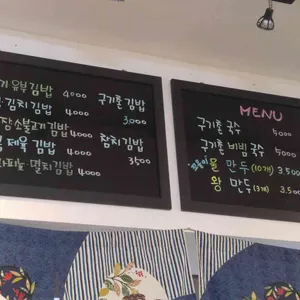 유부김밥 4000
김치김밥 4000
소불고기김밥 4000
제육김밥 4000
멸치김밥 4000
구기촌김밥
3000
참치김밥
3500
MENU
구기촌 국수 5000
구기촌 비빔국수 5000
물 만두 (10개) 3.500
왕 만두 (3개) 3.500